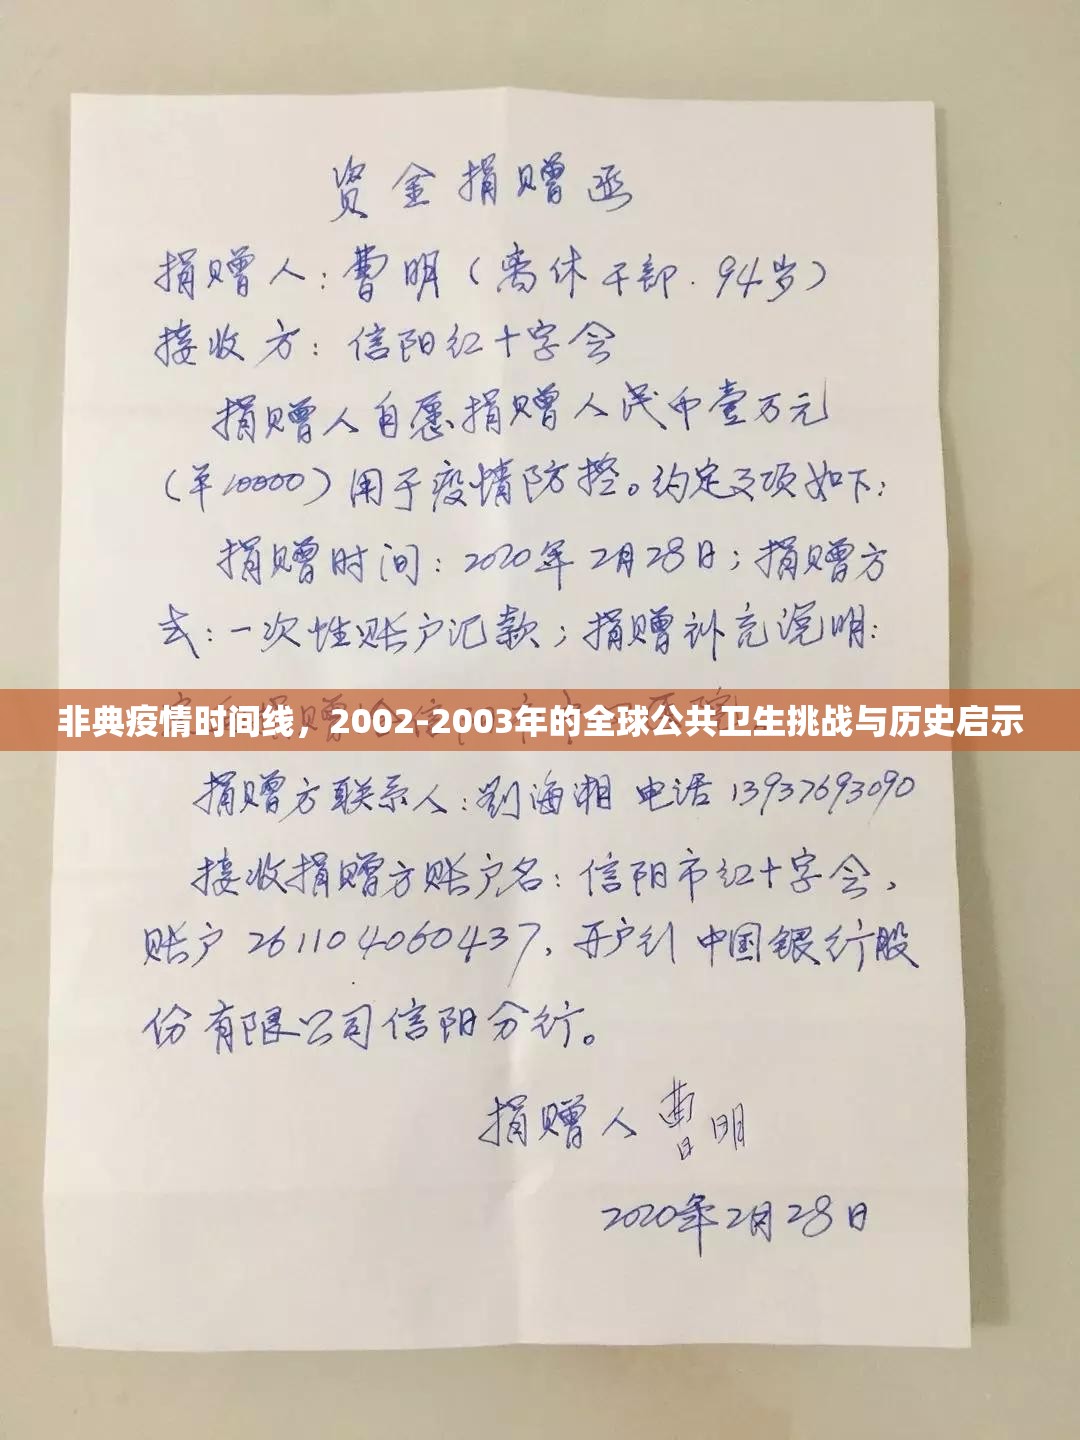 资金捐赠函
捐赠人：曹明（离休干部．94岁）
接收方：信阳红十字会
捐赠人自愿捐赠人民币壹万元
（￥10000）用于疫情防控。约定事项如下：
捐赠时间：2020年2月28日；捐赠方
式：一次性账户汇款；捐赠补充说明：
非典疫情时间线，2002-2003年的全球公共卫生挑战与历史启示
捐赠方联系人：刘海湘 电话 13937693090
接收捐赠方账户名：信阳市红十字会，
账户 261104060437，开户行 中国银行股
份有限公司信阳分行。
捐赠人 曹明
2020年2月28日